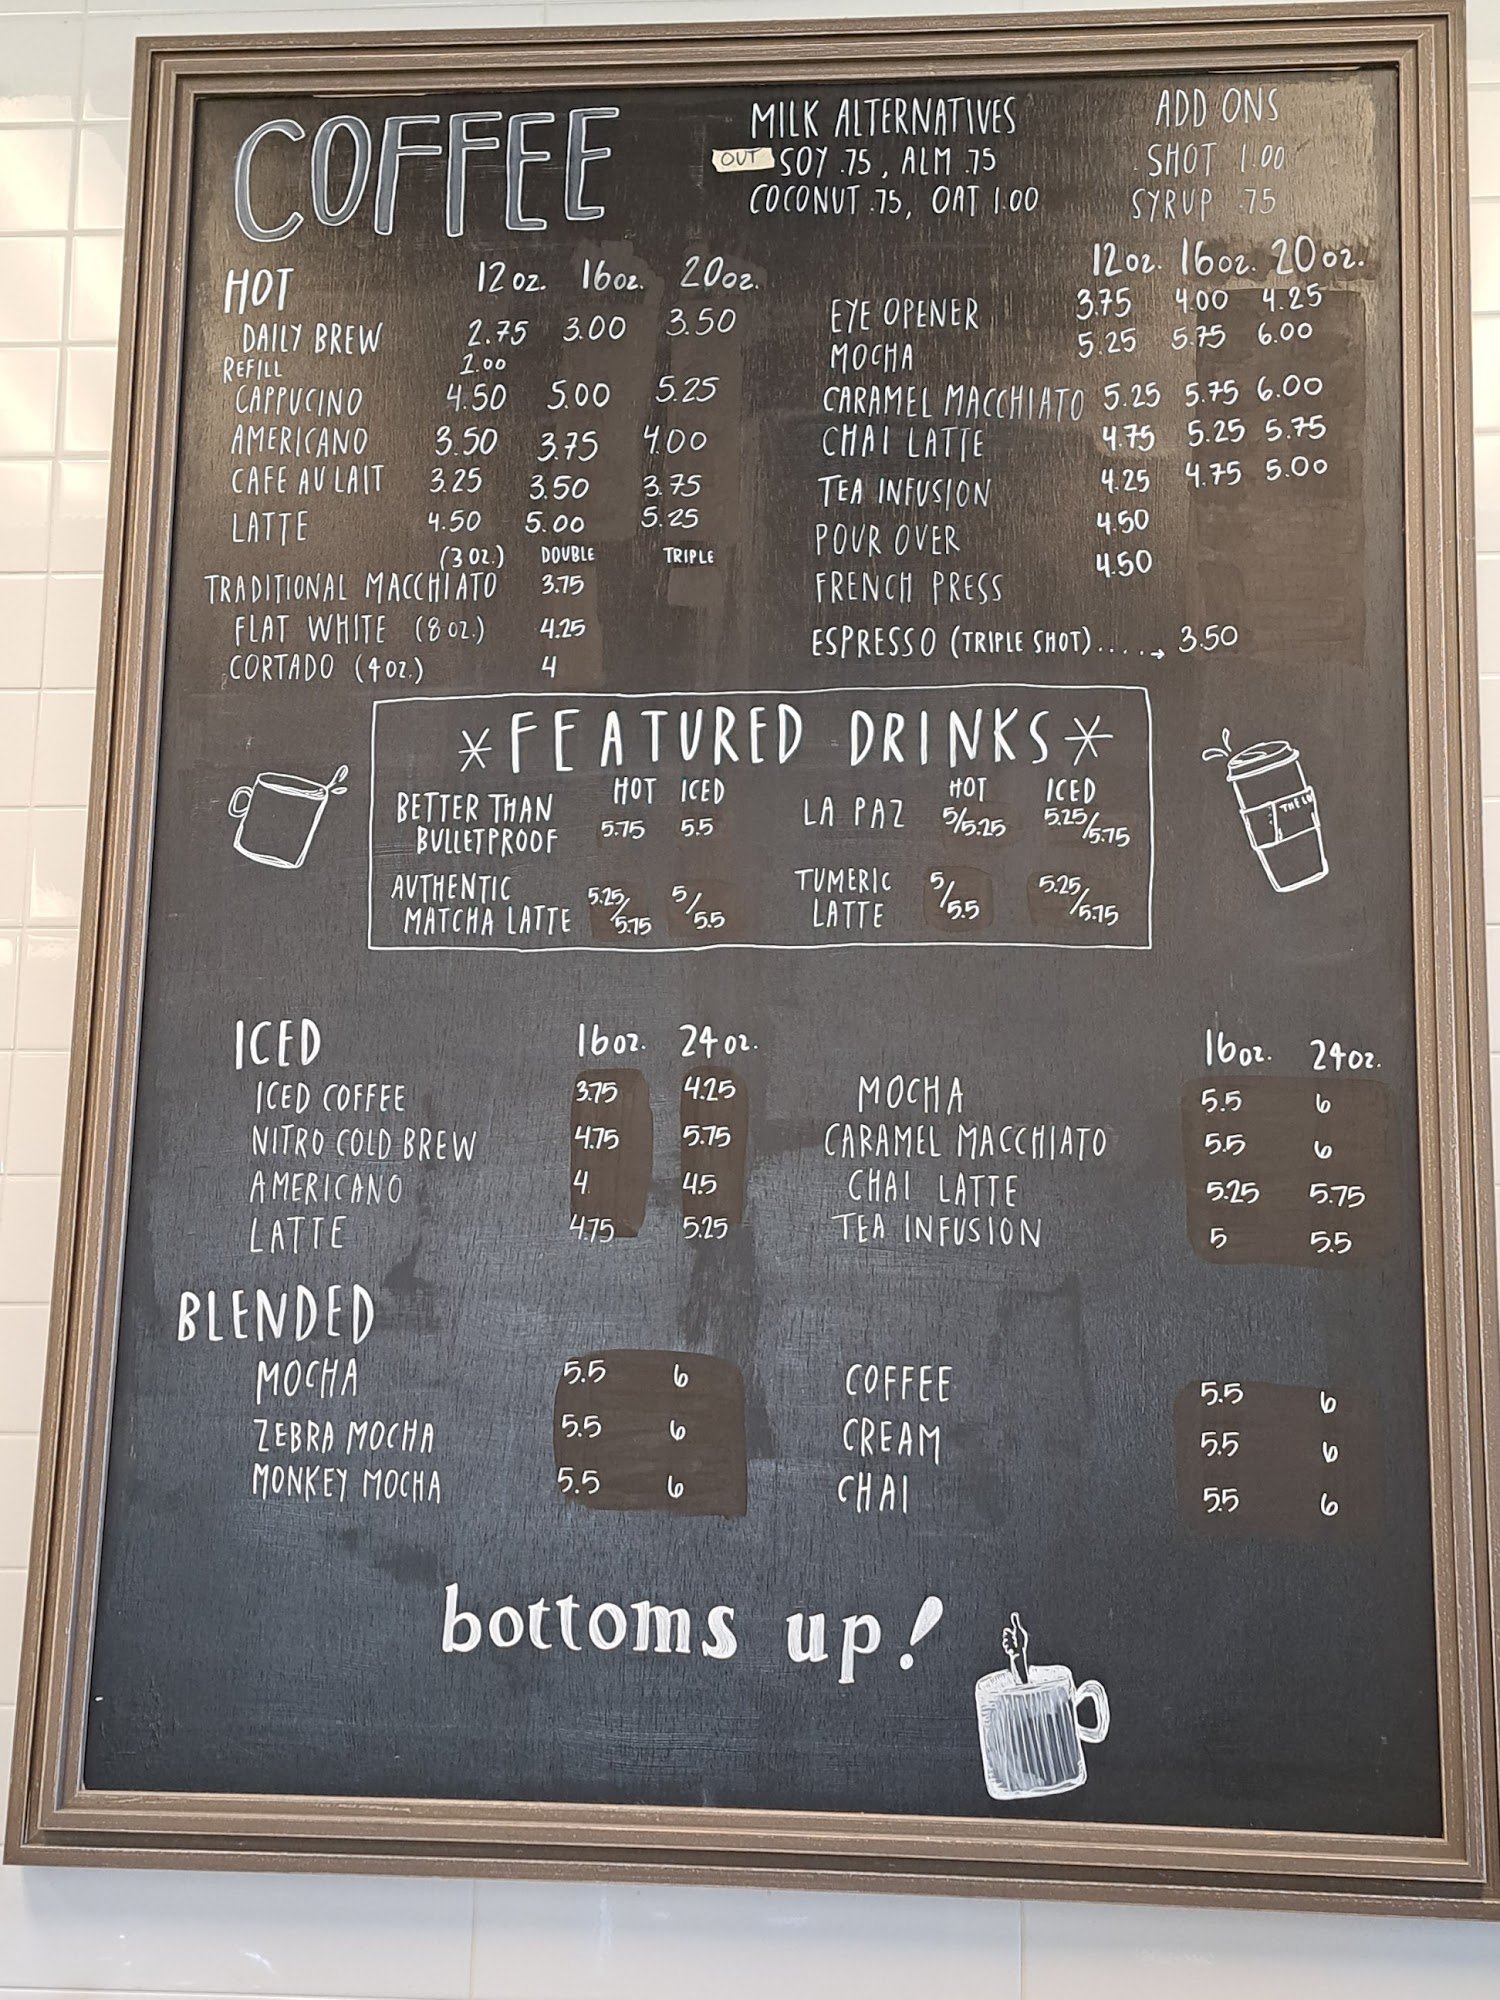 COFFEE
MILK ALTERNATIVES
OUT SOY .75, ALM .75
COCONUT .75, OAT 1.00
ADD ONS
SHOT 1.00
SYRUP .75
HOT 12 oz. 16oz. 20oz.
DAILY BREW 2.75 3.00 3.50
REFILL 2.00
CAPPUCINO 4.50 5.00 5.25
AMERICANO 3.50 3.75 4.00
CAFE AU LAIT 3.25 3.50 3.75
LATTE 4.50 5.00 5.25
(3 OZ.) DOUBLE TRIPLE
TRADITIONAL MACCHIATO 3.75
FLAT WHITE (8 OZ.) 4.25
CORTADO (4 OZ.) 4
12oz. 16oz. 20 oz.
EYE OPENER 3.75 4.00 4.25
MOCHA 5.25 5.75 6.00
CARAMEL MACCHIATO 5.25 5.75 6.00
CHAI LATTE 4.75 5.25 5.75
TEA INFUSION 4.25 4.75 5.00
POUR OVER 4.50
FRENCH PRESS 4.50
ESPRESSO (TRIPLE SHOT)....→ 3.50
*FEATURED DRINKS*
HOT ICED
BETTER THAN
BULLETPROOF 5.75 5.5
AUTHENTIC
MATCHA LATTE 5.25/5.75 5/5.5
HOT ICED
LA PAZ 5/5.25 5.25/5.75
TUMERIC
LATTE 5/5.5 5.25/5.75
THE LO
ICED 16oz. 24oz.
ICED COFFEE 3.75 4.25
NITRO COLD BREW 4.75 5.75
AMERICANO 4 4.5
LATTE 4.75 5.25
16oz. 24oz.
MOCHA 5.5 6
CARAMEL MACCHIATO 5.5 6
CHAI LATTE 5.25 5.75
TEA INFUSION 5 5.5
BLENDED
MOCHA 5.5 6
ZEBRA MOCHA 5.5 6
MONKEY MOCHA 5.5 6
COFFEE 5.5 6
CREAM 5.5 6
CHAI 5.5 6
bottoms up!